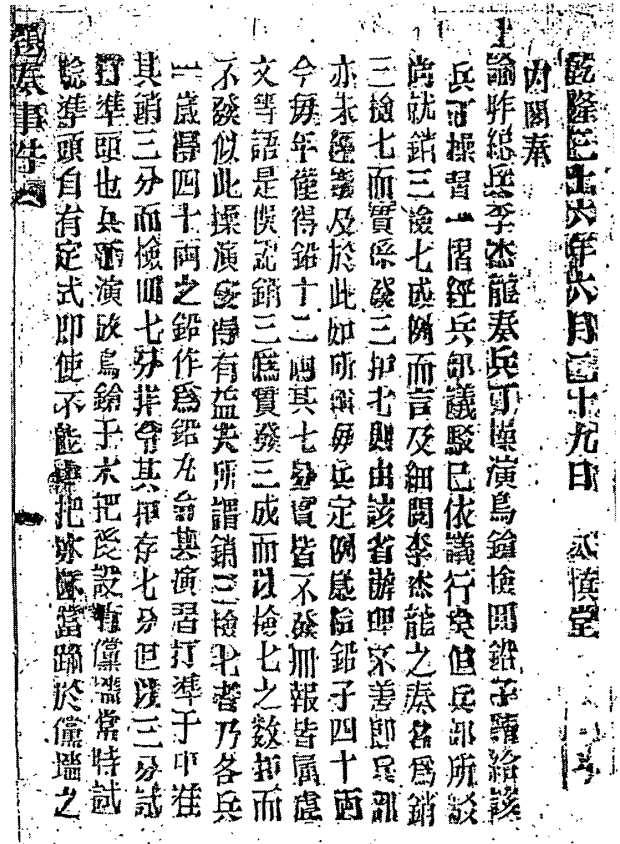 乾隆三十六年六月二十九日　不慎堂
內閣奉
上諭昨總兵李杰龍奏兵丁操演鳥鎗撿回鉛子請給該
兵丁操習一摺經兵部議駁已依議行矣但兵部所駁
尚就銷三撿七成例而言及細閱李杰龍之奏名爲銷
三撿七而實係發三扣七則由該省辦理不善卽兵部
亦未經議及於此如所稱每兵定例歲給鉛子四十兩
今每年僅得鉛十二兩其七分實皆不發冊報皆屬虛
文等語是俱說銷三爲實發三成而以撿七之數扣而
不發似此操演安得有益矣所謂銷三撿七者乃各兵
一歲得四十兩之鉛作爲鉛丸令其演習打準于中准
其銷三分而撿回七分非令其扣存七分但以三分試
打準頭也兵丁演放鳥鎗于木把後設有儻墻常時試
驗準頭自有定式卽使不能中把亦應當蹄於儻墻之
事件